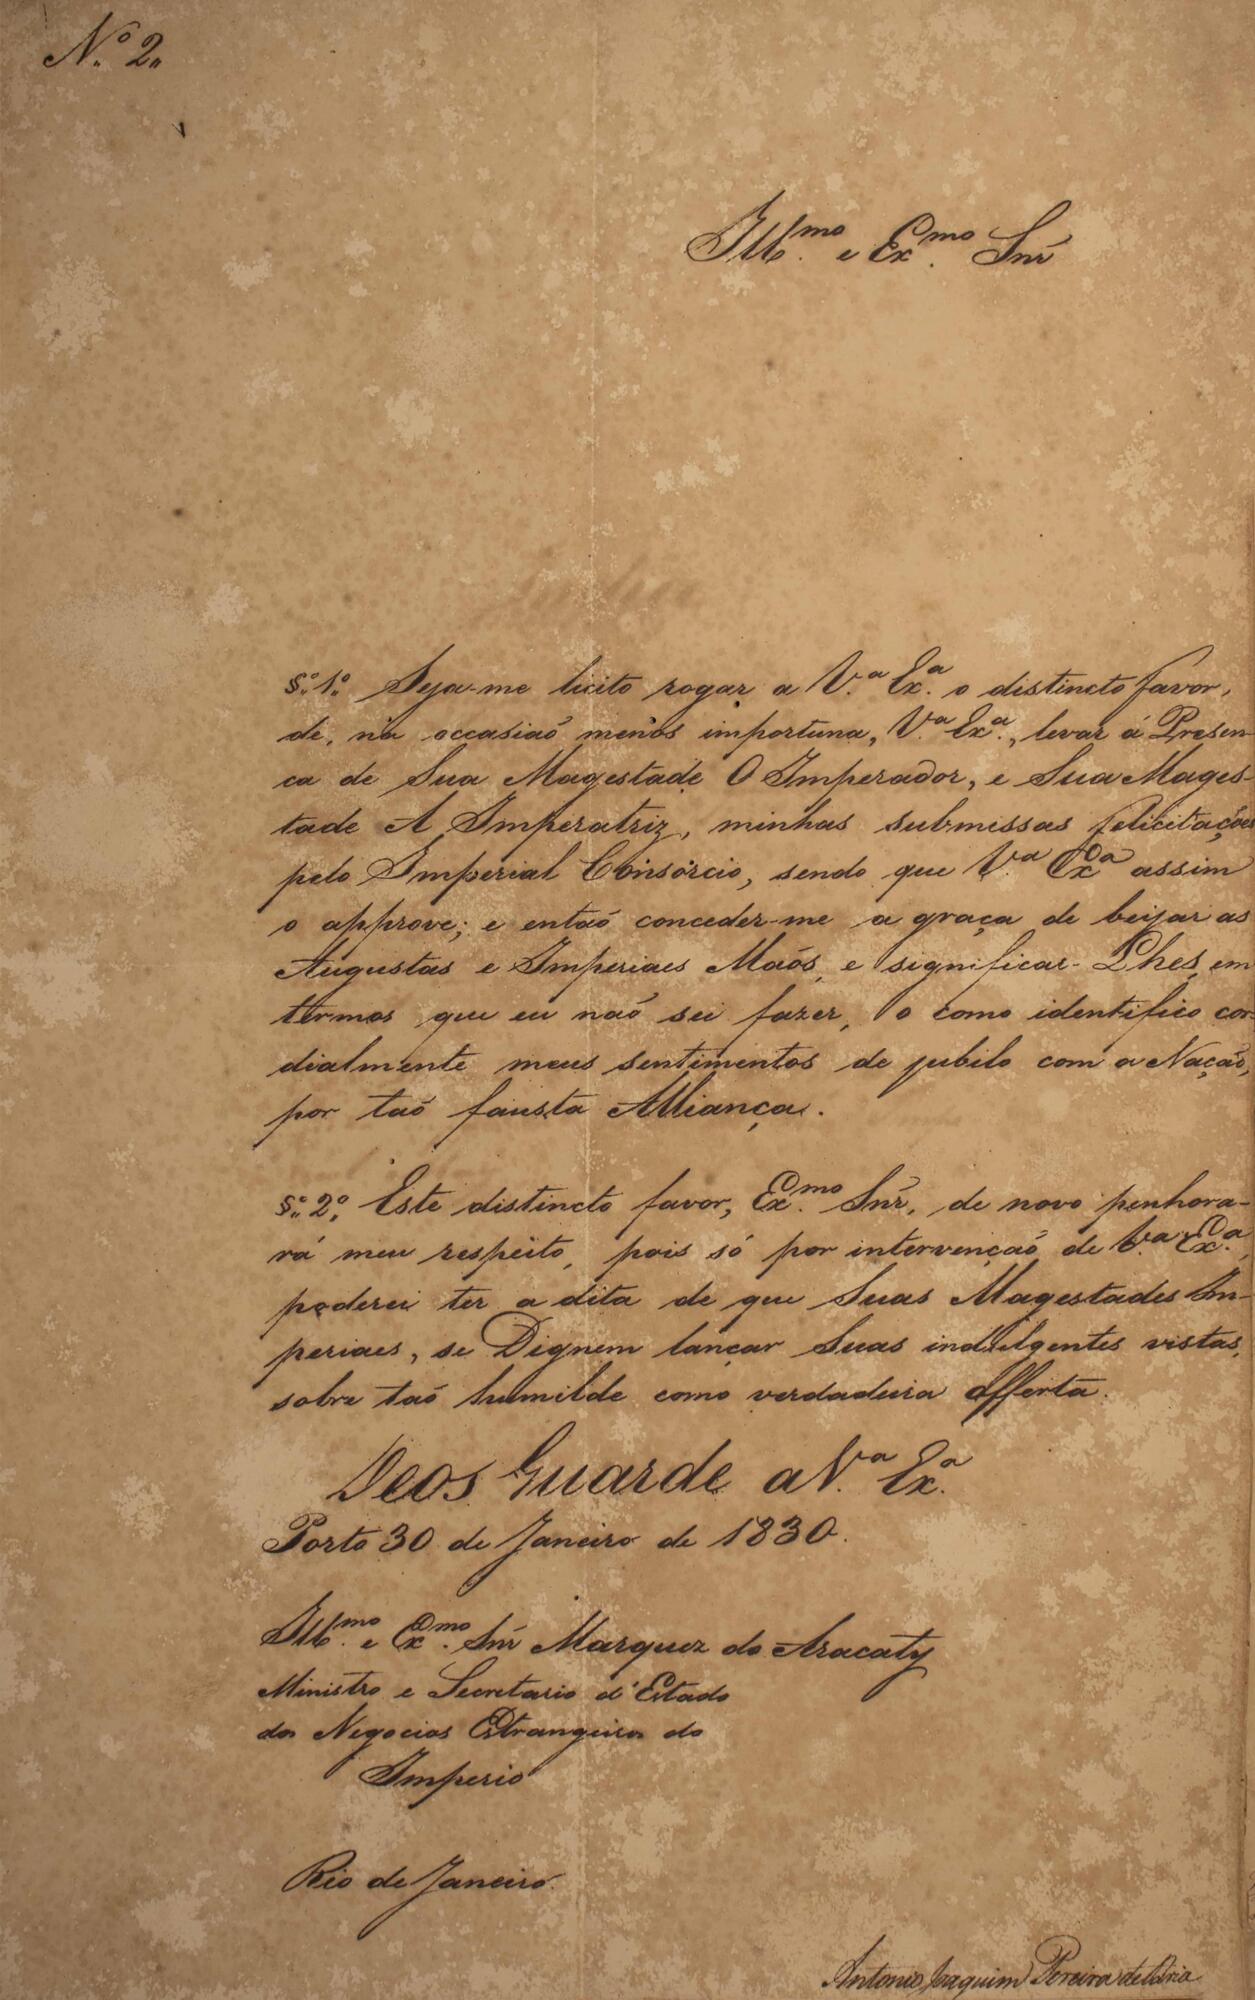 N.º 2.
Ill.mo e Ex.mo Snr
§.º 1.º Seja-me licito rogar a V.ª Ex.ª o distincto favor,
de, na occasiaõ menos importuna, V.ª Ex.ª, levar á Presen-
ca de Sua Magestade O Imperador, e Sua Mages-
tade A Imperatriz, minhas submissas felicitações
pelo Imperial Consórcio, sendo que V.ª Ex.ª assim
o approve; e entaõ conceder-me a graça de beijar as
Augustas e Imperiaes Maõs, e significar-Lhes, em
termos que eu naõ sei fazer, o como identifico cor-
dialmente meus sentimentos de jubilo com a Naçaõ,
por taõ fausta Alliança.
§.º 2.º Este distincto favor, Ex.mo Snr, de novo penhora-
rá meu respeito, pois só por intervençaõ de V.ª Ex.ª,
poderei ter a dita de que Suas Magestades Im-
periaes, se Dignem lançar Suas indulgentes vistas,
sobre taõ humilde como verdadeira offerta.
Deos Guarde a V.ª Ex.ª
Porto 30 de Janeiro de 1830.
Ill.mo e Ex.mo Snr Marquez do Aracaty
Ministro e Secretario d'Estado
dos Negocios Estrangeiros do
Imperio
Rio de Janeiro
Antonio Joaquim Pereira de Faria